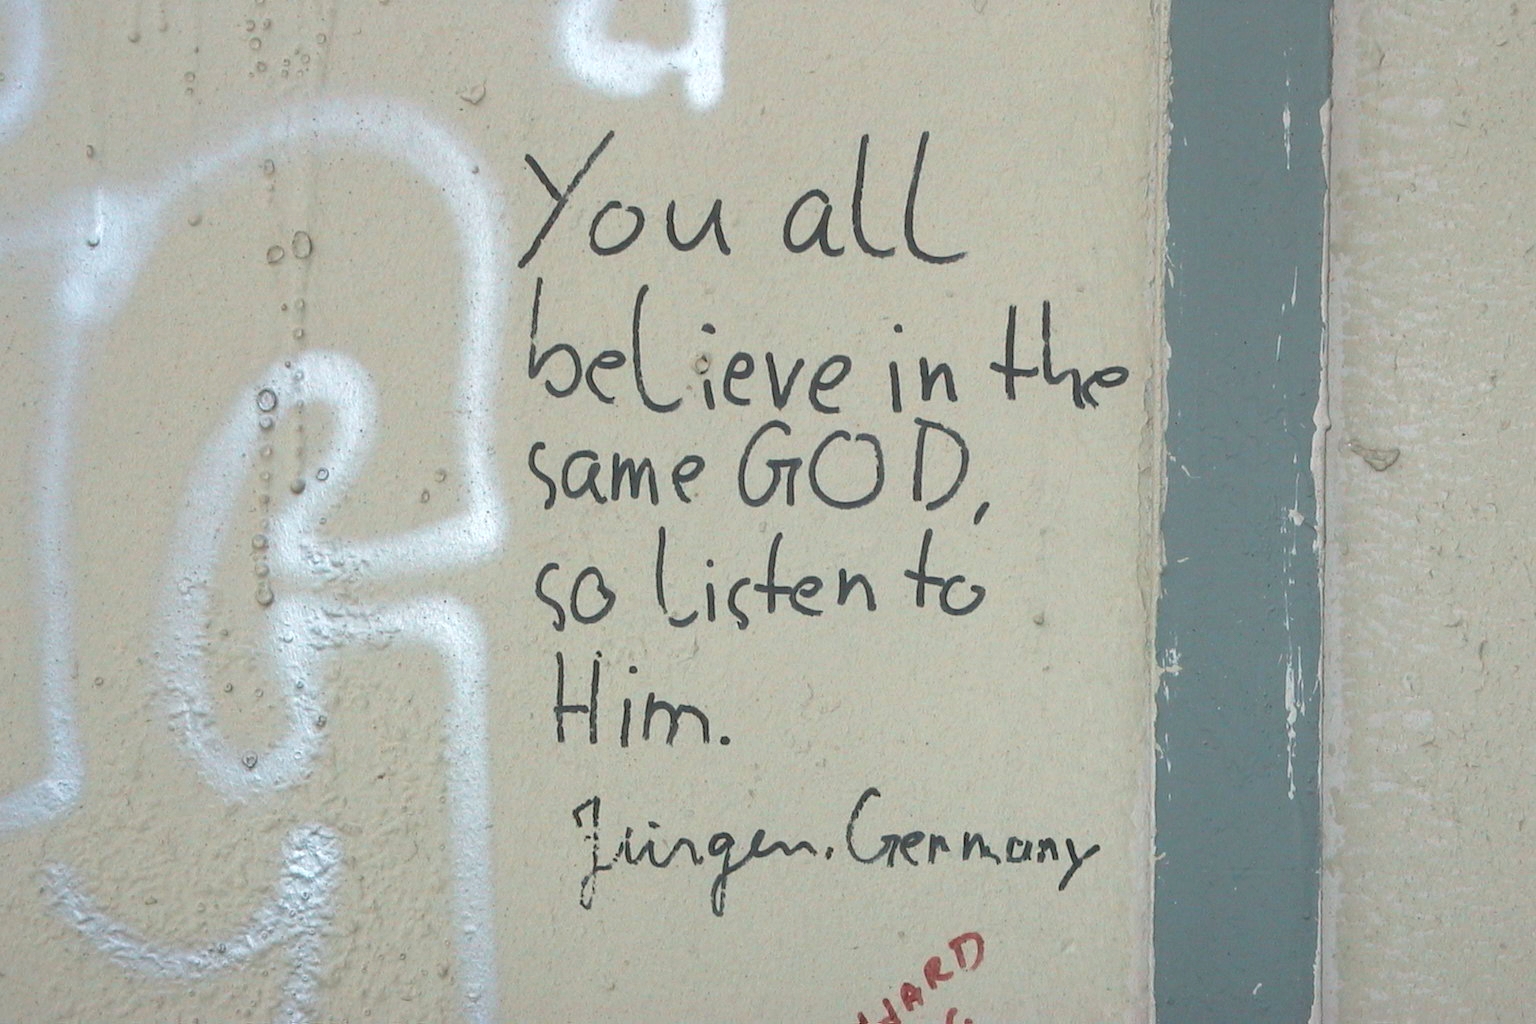 You all
believe in the
same GOD,
so listen to
Him.
Jürgen. Germany